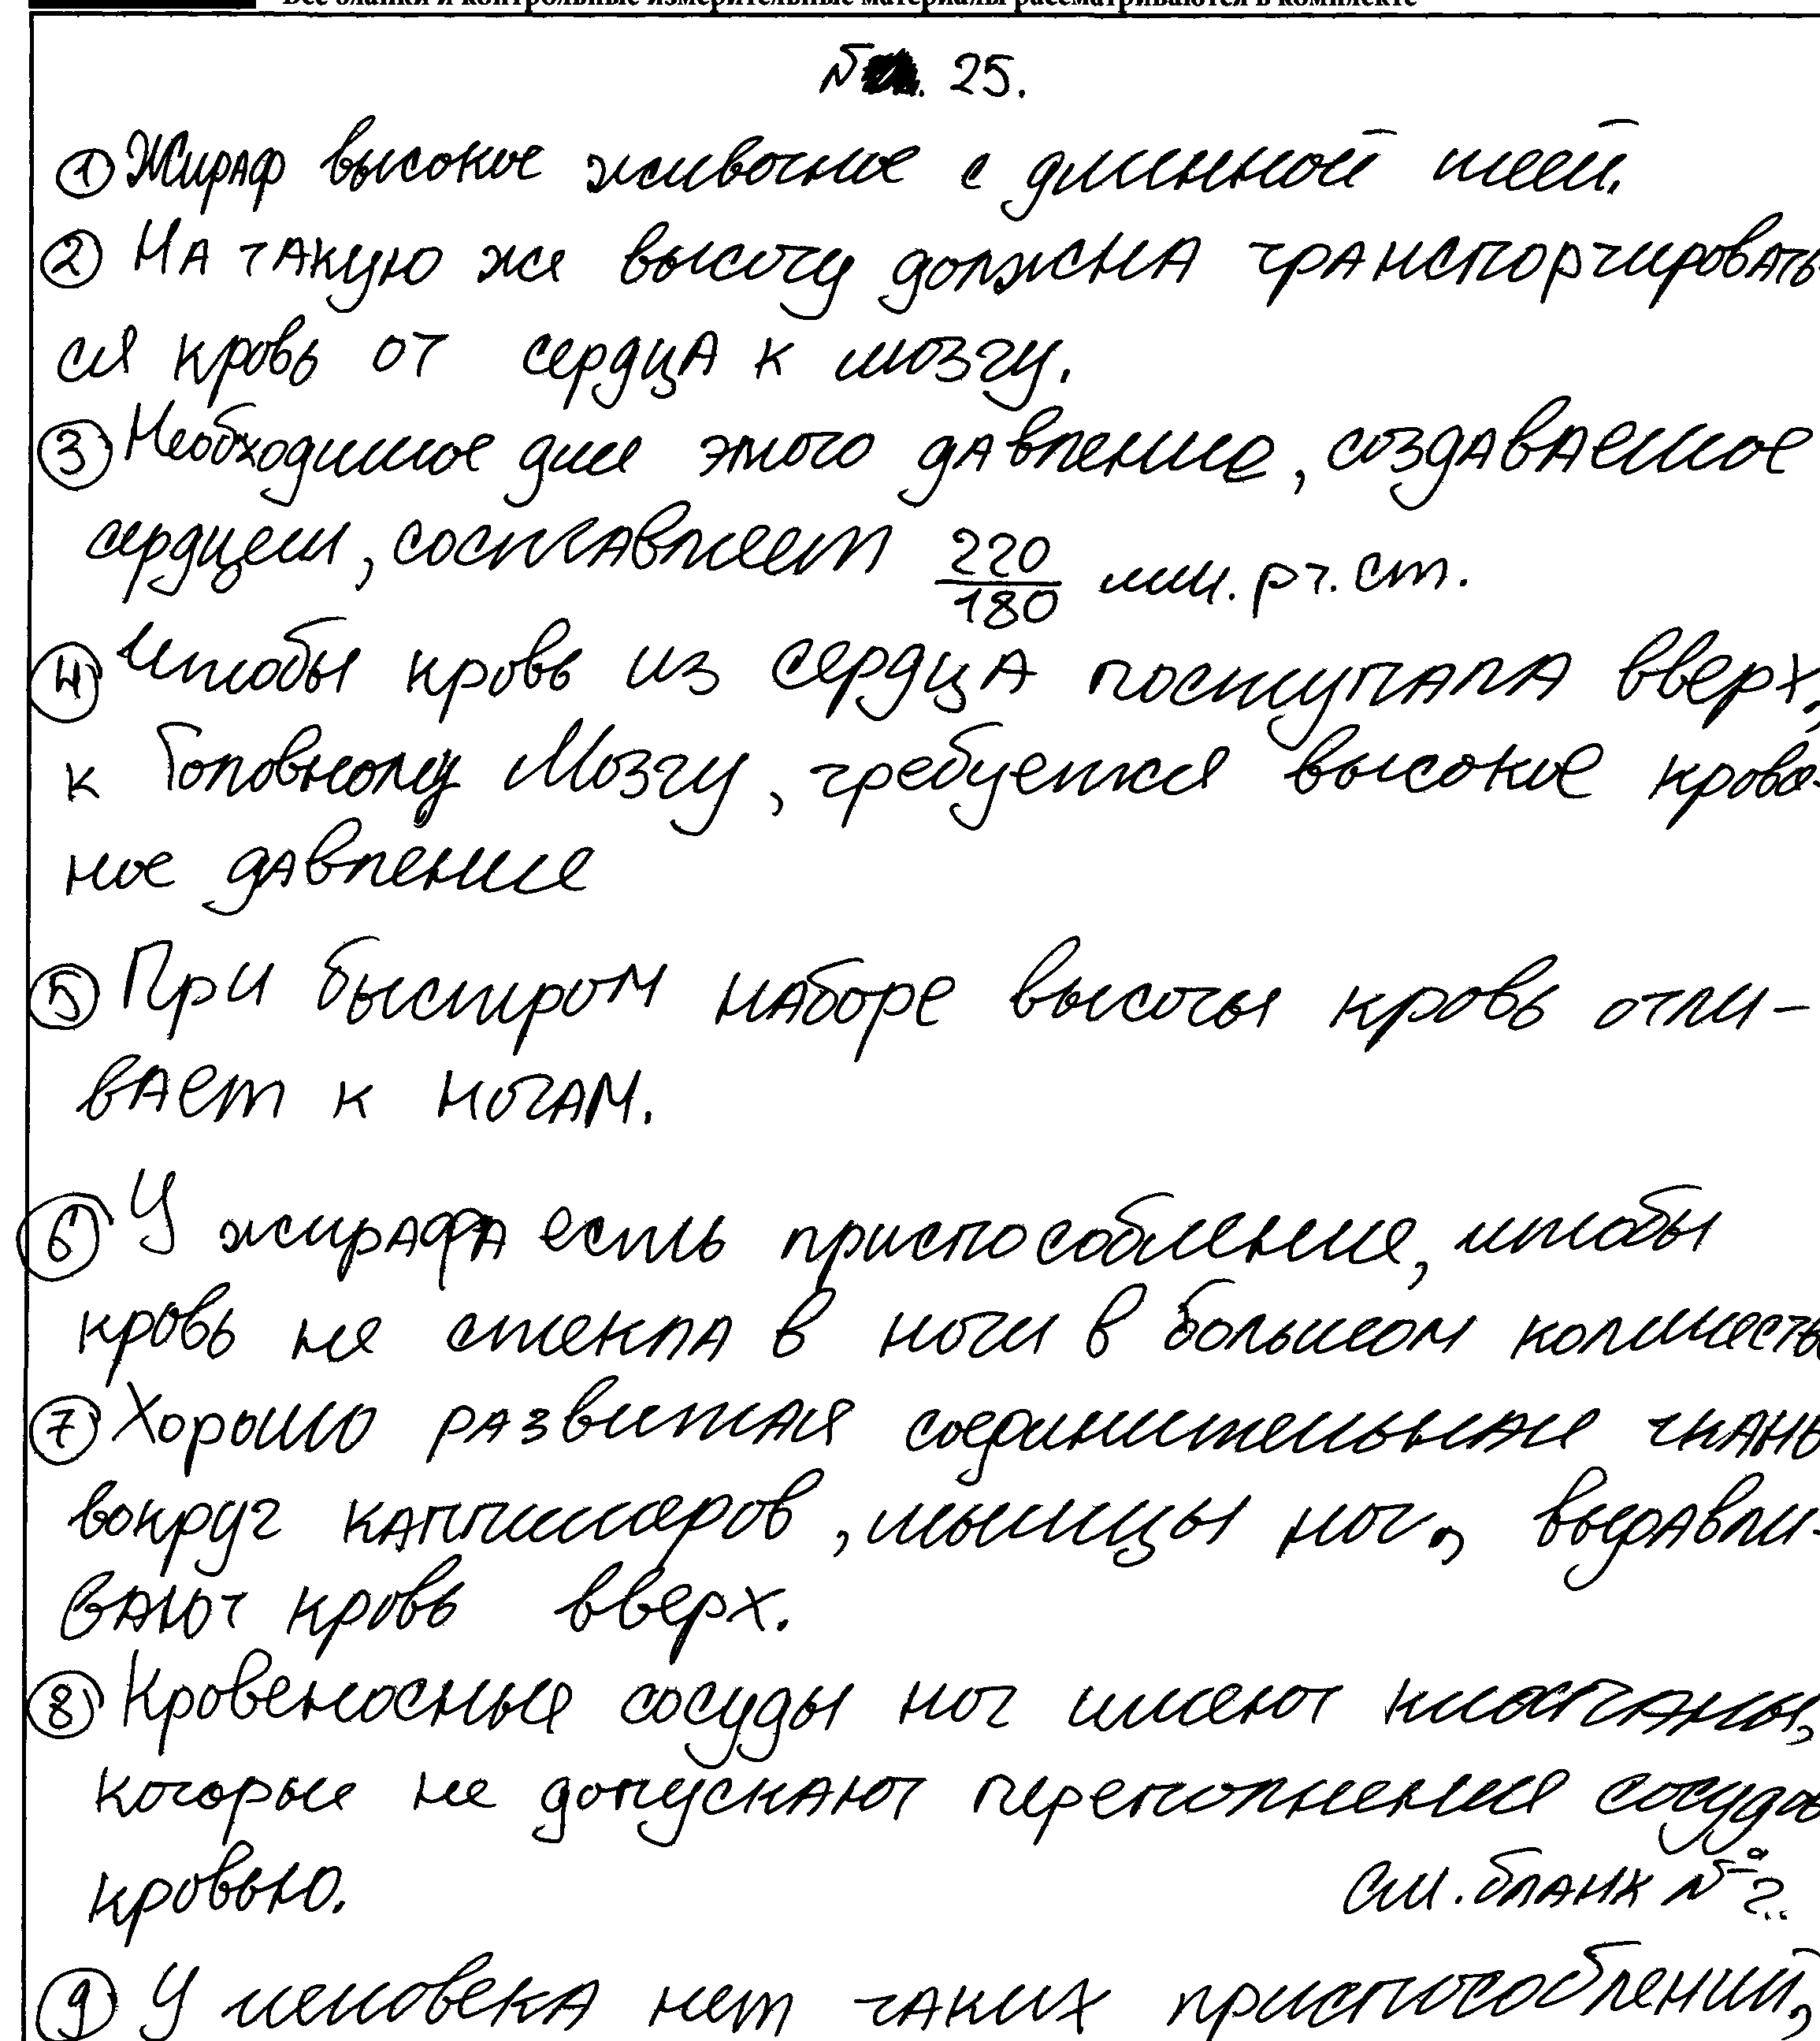 Все бланки и контрольные измерительные материалы рассматриваются в комплекте
№ . 25.
① Жираф высокое животное с длинной шеей.
② На такую же высоту должна транспортировать-
ся кровь от сердца к мозгу.
③ Необходимое для этого давление, создаваемое
сердцем, составляет 220/180 мм. рт. ст.
④ Чтобы кровь из сердца поступала вверх,
к Головному Мозгу, требуется высокое кровя-
ное давление
⑤ При быстром наборе высоты кровь отли-
вает к ногам.
⑥ У жирафа есть приспособление, чтобы
кровь не стекла в ноги в большом количестве
⑦ Хорошо развитая соединительная ткань
вокруг капилляров, мышцы ног, выдавли-
вают кровь вверх.
⑧ Кровеносные сосуды ног имеют клапаны,
которые не допускают переполнения сосудов
кровью.
См. бланк № 2..
⑨ У человека нет таких приспособлений,